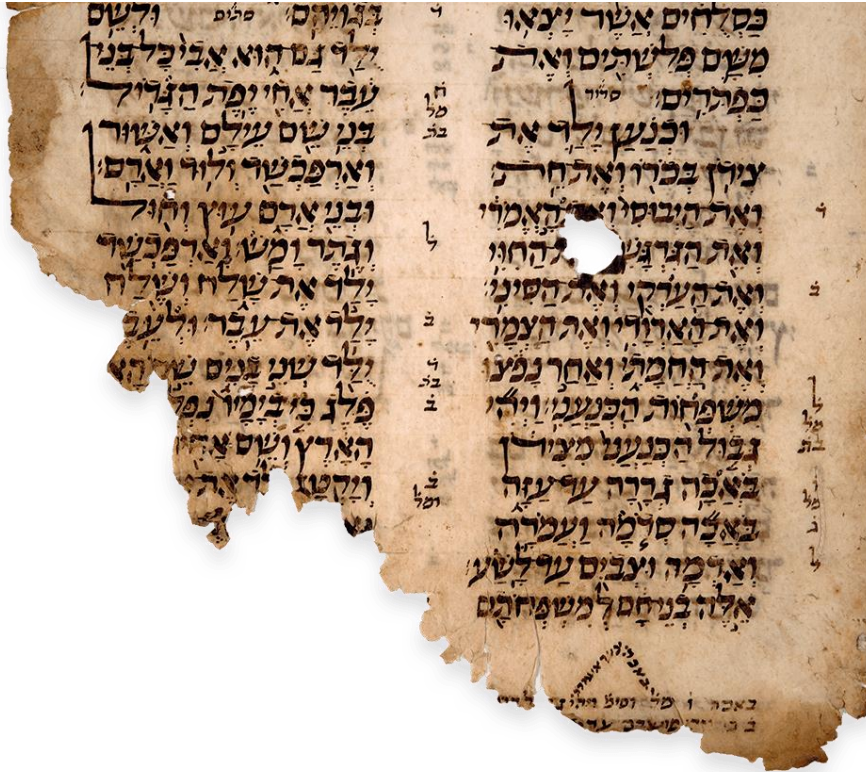 כסלחים אשר יצאו
משם פלשתים ואת
כפתרים׃
וכנען ילד את
צידן בכרו ואת חת
ואת היבוסי ואת האמרי
ואת הגרגש החוי
ואת הערקי ואת הסיני
ואת הארודי ואת הצמרי
ואת החמתי ואחר נפצו
משפחות הכנעני ויהי
גבול הכנעני מצידן
באכה גררה עד עזה
באכה סדמה ועמרה
ואדמה וצבים עד לשע׃
אלה בני חם למשפחתם
בגויהם׃ ולשם
ילד גם הוא אבי כל בני
עבר אחי יפת הגדול
בני שם עילם ואשור
וארפכשד ולוד וארם׃
ובני ארם עוץ וחול
וגתר ומש׃ וארפכשד
ילד את שלח ושלח
ילד את עבר ולעב
ילד שני בנים
פלג כי בימיו
הארץ ושם
ויקטן ילד את